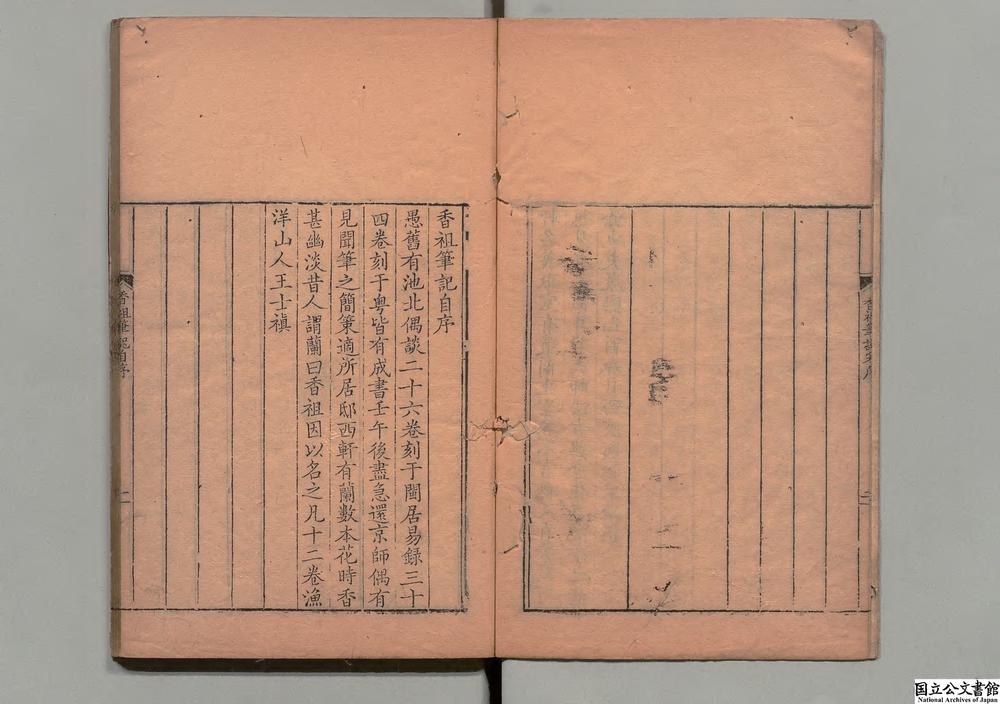 香祖筆記自序
愚舊有池北偶談二十六卷刻于閩居易録三十
四卷刻于粤皆有成書壬午後盡急還京師偶有
見聞筆之簡策適所居邸西軒有蘭數本花時香
甚幽淡昔人謂蘭曰香祖因以名之凡十二卷漁
洋山人王士禛
香祖筆記自序
一
国立公文書館
National Archives of Japan